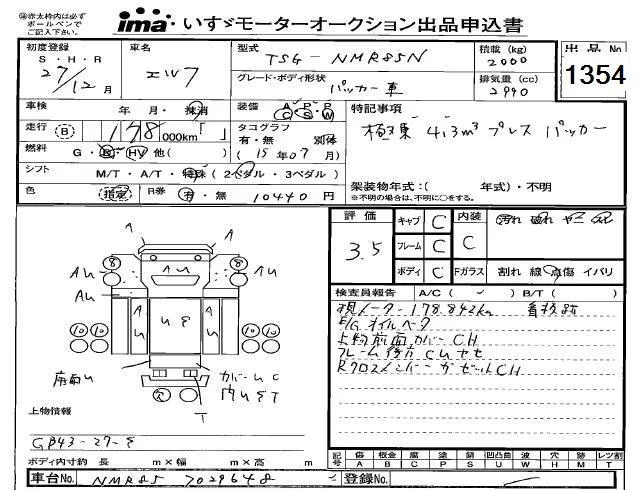 ㊟赤太枠内は必ず
ボールペンで
ご記入下さい。
ima いすゞモーターオークション出品申込書
初度登録 車名 型式 TSG-NMR85N 積載 (kg) 2000 出品No
S・H・R
27/12月 エルフ グレード・ボディ形状 パッカー車 排気量 (cc) 2990 1354
車検 年 月・抹消 装備 A P P C S W 特記事項
走行 (B) 178 000km「 」 タコグラフ 有・無 別体 極東 4.3m³ プレス パッカー
燃料 G・D・HV 他( ) (15年07月)
シフト M/T・A/T・特殊 (2ペダル・3ペダル) 架装物年式:( 年式)・不明
色 指定 R券 有・無 10440円 ※不明の場合は、不明に○をする。
評価 3.5 キャブ C 内装 C 汚れ 破れ ヤニ
フレーム C
ボディ C Fガラス 割れ 線 点傷 イバリ
検査員報告 A/C ( ) B/T ( )
現メーター178,842km
E/Gオイルベタ
上物前面カバーCH
フレーム後方CUサセ
RクロスメンバーガゼットCH
A A
8 8
AU U AU
AU
AU U S
10 10 10 10
座面U カバーU C
内U S T
T
上物情報
GB43-27-8
ボディ内寸約 長 m×幅 m×高 m
記号 傷 A 板金 B 腐 C 塗 P 錆 S 凹凸曲 U 波 W 穴 H 跡 M レツ割 T
車台No. NMR85 7029648 登録No.